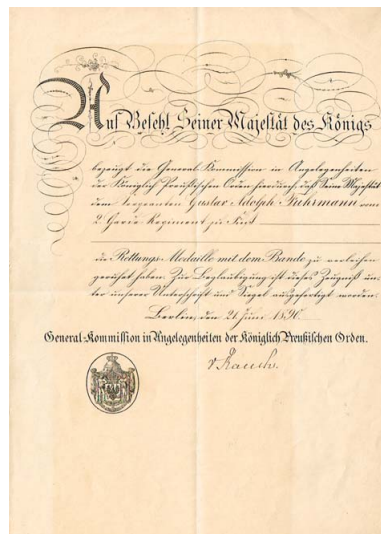 Auf Befehl Seiner Majestät des Königs
bezeugt die General-Kommission in Angelegenheiten
der Königlich Preußischen Orden hierdurch, daß Seine Majestät
dem Sergeanten Gustav Adolph Fuhrmann vom
2. Garde Regiment zu Fuß
die Rettungs-Medaille mit dem Bande zu verleihen
geruht haben. Zur Beglaubigung ist dieses Zeugniß un-
ter unserer Unterschrift und Siegel ausgefertigt worden.
Berlin, den 21. Juni 1890.
General-Kommission in Angelegenheiten der Königlich Preußischen Orden.
v Rauch.